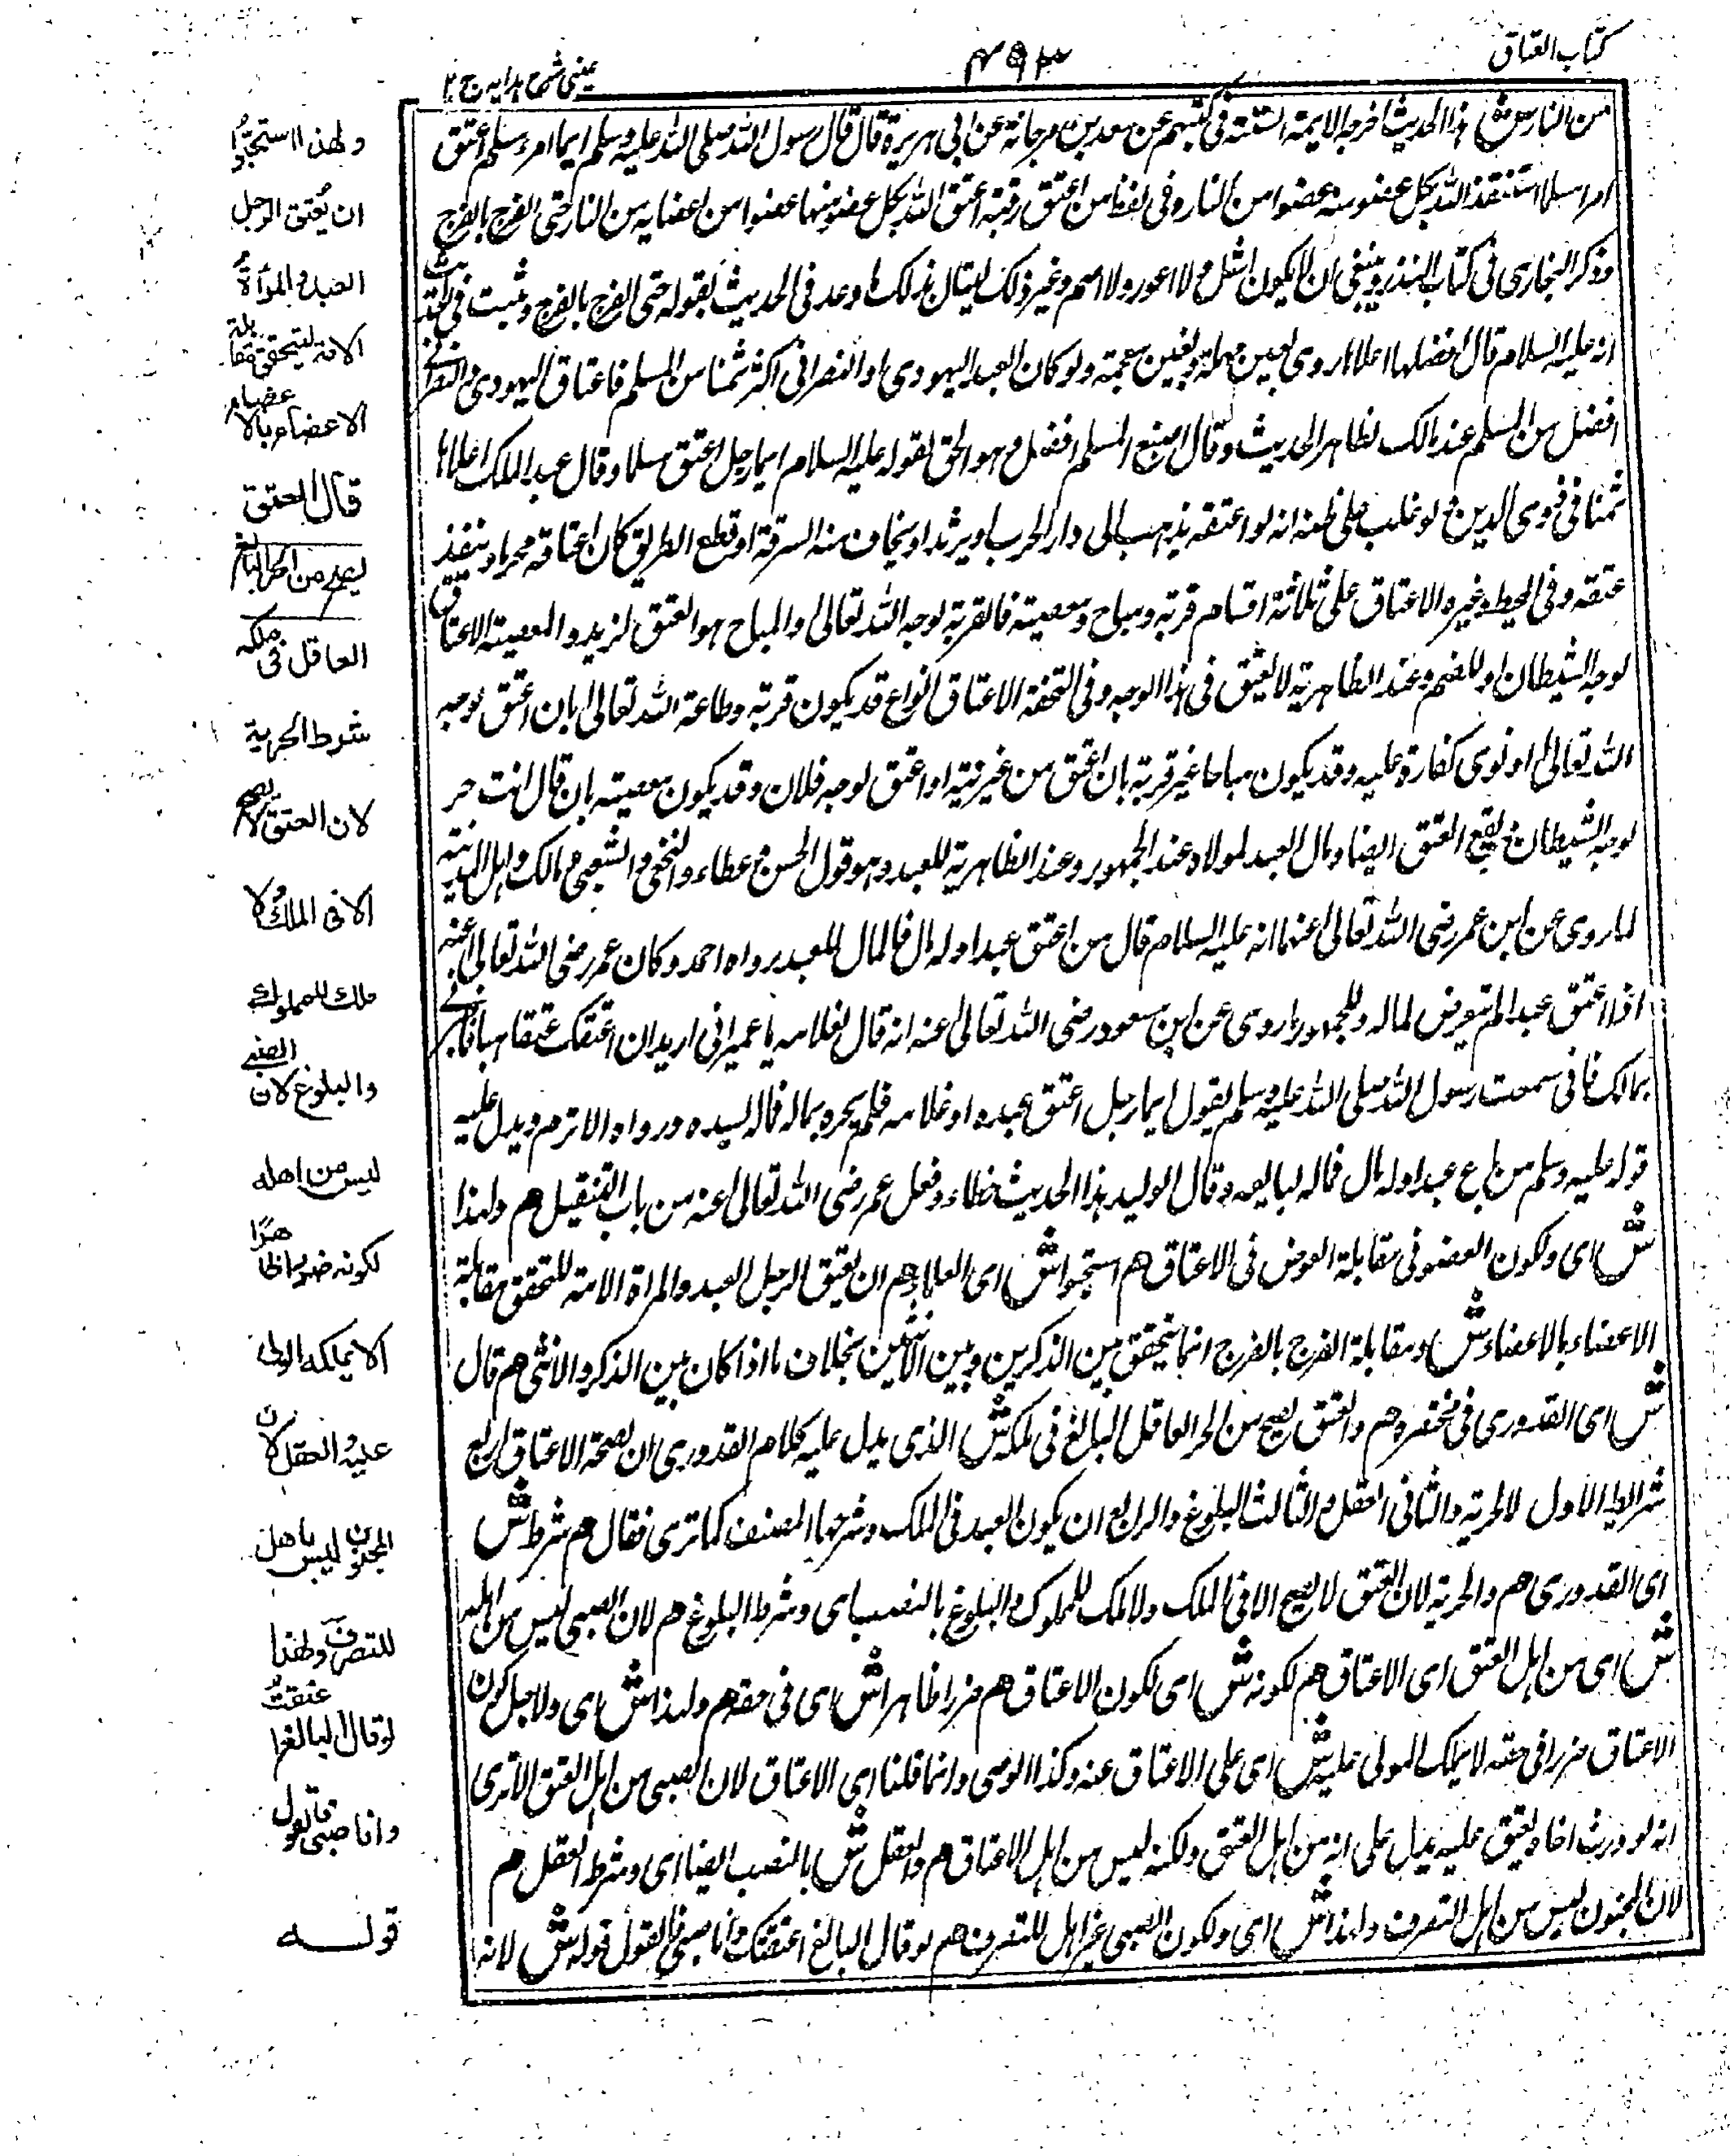 كتاب العتاق
٤٩٣
عينى شرح هدايه ج ٢
من النار ش هذا الحديث اخرجه الايمة الستة فى كتبهم عن سعد بن مرجانة عن ابى هريرة قال قال رسول الله صلى الله عليه وسلم ايما امرء مسلم اعتق
امرا مسلما استنقذ الله بكل عضو منه عضوا من النار وفى لفظ من اعتق رقبة اعتق الله بكل عضو منها عضوا من اعضايه من النار حتى الفرج بالفرج
وذكر البخارى فى كتاب النذر وينبغى ان لا يكون اشل ولا اعور ولا اصم وغير ذلك لينال بذلك ما وعد فى الحديث بقوله حتى الفرج بالفرج وثبت فى
انه عليه السلام قال افضلها اعلاها روى بعين مهملة وبغين معجمة ولو كان العبد اليهودى او النصرانى اكثر ثمنا من المسلم فاعتاق اليهودى والنصرانى
افضل من المسلم عند مالك لظاهر الحديث وقال اصبغ المسلم افضل وهو الحق لقوله عليه السلام ايما رجل اعتق مسلما وقال عبد الملك اعلاها
ثمنا فى ذوى الدين لو غلب على ظنه انه لو اعتقه يذهب الى دار الحرب او يرتد او يخاف منه السرقة او قطع الطريق كان اعتاقه محرما وينفذ
عتقه وفى المحيط وغيره الاعتاق على ثلاثة اقسام قربة ومباح ومعصية فالقربة لوجه الله تعالى والمباح هو العتق لزيد والمعصية الاعتاق
لوجه الشيطان او للصنم وعند الظاهرية لا يعتق فى هذا الوجه وفى التحفة الاعتاق انواع قد يكون قربة وطاعة الله تعالى بان اعتق لوجه
الله تعالى او نوى كفارة عليه وقد يكون مباحا غير قربة بان اعتق من غير نية او اعتق لوجه فلان وقد يكون معصية بان قال انت حر
لوجه الشيطان يقع العتق ايضا ومال العبد لمولاه عند الجمهور وعند الظاهرية للعبد وهو قول الحسن وعطاء والنخعى والشعبى ومالك واهل المدينة
لما روى عن ابن عمر رضى الله تعالى عنهما انه عليه السلام قال من اعتق عبدا وله مال فالمال للعبد رواه احمد وكان عمر رضى الله تعالى عنه
اذا اعتق عبدا لم يتعرض لماله وللجمهور ما روى عن ابن مسعود رضى الله تعالى عنه انه قال لغلامه يا عمير انى اريد ان اعتقك عتقا هنيا فاخبرنى
بمالك فانى سمعت رسول الله صلى الله عليه وسلم يقول ايما رجل اعتق عبده او غلامه فلم يخبره بماله فماله لسيده ورواه الاثرم ويدل عليه
قوله عليه وسلم من باع عبدا وله مال فماله لبايعه وقال الوليد هذا الحديث خطاء وفعل عمر رضى الله تعالى عنه من باب التنفيل هم ولهذا
ش اى ولكون العضو فى مقابلة العوض فى الاعتاق هم استحبوا ش اى العلماء هم ان يعتق الرجل العبد والمراة الامة للتحقق مقابلة
الاعضاء بالاعضاء ش ومقابلة الفرج بالفرج انما يتحقق بين الذكرين وبين الانثيين بخلاف ما اذا كان بين الذكر والانثى هم قال
ش اى القدورى فى مختصره هم والعتق يصح من الحر العاقل البالغ فى ملكه ش الذى يدل عليه كلام القدورى ان لصحة الاعتاق اربع
شرايط الاول الحرية والثانى العقل والثالث البلوغ والرابع ان يكون العبد فى الملك وشرحها المصنف كما ترى فقال هم شرط ش
اى القدورى هم والحرية لان العتق لا يصح الا فى الملك ولا ملك للملوك والبلوغ بالنصب اى وشرط البلوغ هم لان الصبى ليس من اهله
ش اى من اهل العتق اى الاعتاق هم لكونه ش اى لكون الاعتاق هم ضررا ظاهرا ش اى فى حقه هم ولهذا ش اى ولاجل كون
الاعتاق ضررا فى حقه لا يملك المولى عليه ش اى على الاعتاق عنه وكذا الوصى وانما قلنا اى الاعتاق لان الصبى من اهل العتق الا ترى
انه لو ورث اخاه يعتق عليه يدل على انه من اهل العتق ولكنه ليس من اهل الاعتاق هم والعقل ش بالنصب ايضا اى وشرط العقل هم
لان المجنون ليس من اهل التصرف ولهذا ش اى ولكون الصبى غير اهل للتصرف هم لو قال البالغ اعتقتك وانا صبى فالقول قوله ش لانه
ولهذا استحبوا
ان يعتق الرجل
العبد والمرأة
الامة ليتحقق مقابلة
الاعضاء بالاعضاء
قال العتق
يصح من الحر البالغ
العاقل فى ملكه
شرط الحرية
لان العتق لا يصح
الا فى الملك ولا
ملك للمملوك
والبلوغ لان الصبى
ليس من اهله
لكونه ضررا ظاهرا
الا يملكه الولى
عليه والعقل لان
المجنون ليس باهل
للتصرف ولهذا
لو قال البالغ اعتقت
وانا صبى فالقول
قوله